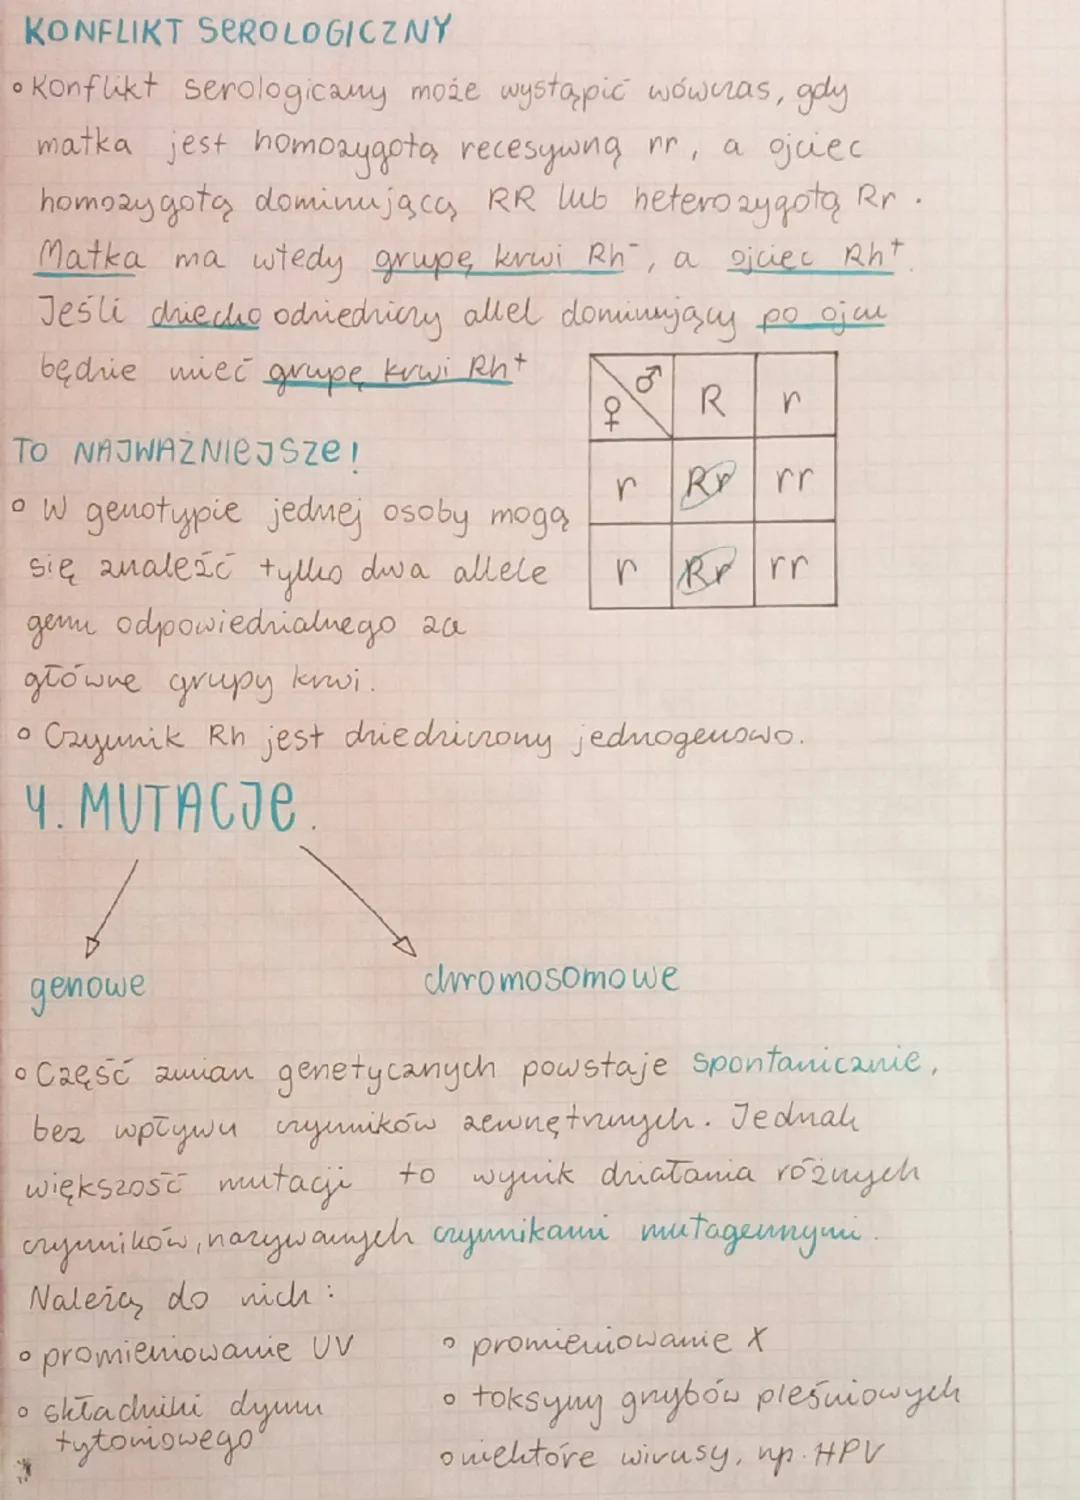 KONFLIKT SEROLOGICZNY
◦ Konflikt serologiczny może wystąpić wówczas, gdy
matka jest homozygotą recesywną rr, a ojciec
homozygotą dominującą RR lub heterozygotą Rr.
Matka ma wtedy grupę krwi Rh⁻, a ojciec Rh⁺.
Jeśli dziecko odziedziczy allel dominujący po ojcu
będzie mieć grupę krwi Rh⁺
♀ ♂ R r
r Rr rr
r Rr rr
TO NAJWAŻNIEJSZE!
◦ W genotypie jednej osoby mogą
się znaleźć tylko dwa allele
genu odpowiedzialnego za
główne grupy krwi.
◦ Czynnik Rh jest dziedziczony jednogenowo.
4. MUTACJE.
genowe chromosomowe
◦ Część zmian genetycznych powstaje spontanicznie,
bez wpływu czynników zewnętrznych. Jednak
większość mutacji to wynik działania różnych
czynników, nazywanych czynnikami mutagennymi.
Należą do nich:
◦ promieniowanie UV
◦ składniki dymu
tytoniowego
◦ promieniowanie X
◦ toksyny grzybów pleśniowych
◦ niektóre wirusy, np. HPV